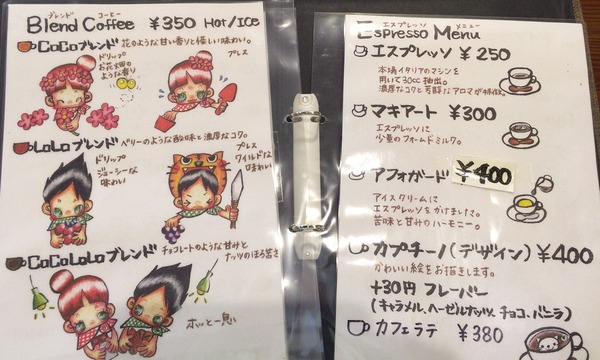 ブレンド コーヒー
Blend Coffee ¥350 HOT/ICE
CoCoブレンド 花のような甘い香りと優しい味わい。
ドリップ
お花畑の
ような香り
プレス
LoLoブレンド ベリーのような酸味と濃厚なコク。
ドリップ
ジューシーな
味わい
プレス
ワイルドな
味わい
CoCoLoLoブレンド チョコレートのような甘みと
ナッツのほろ苦さ
ホッと一息
エスプレッソ メニュー
Espresso Menu
エスプレッソ ¥250
本場イタリアのマシンを
用いて30cc抽出。
濃厚なコクと芳醇なアロマが特徴
マキアート ¥300
エスプレッソに
少量のフォームドミルク。
アフォガード ¥400
アイスクリームに
エスプレッソをかけました。
苦味と甘みのハーモニー。
カプチーノ(デザイン) ¥400
かわいい絵をお描きします。
+30円 フレーバー
(キャラメル、ヘーゼルナッツ、チョコ、バニラ)
カフェラテ ¥380